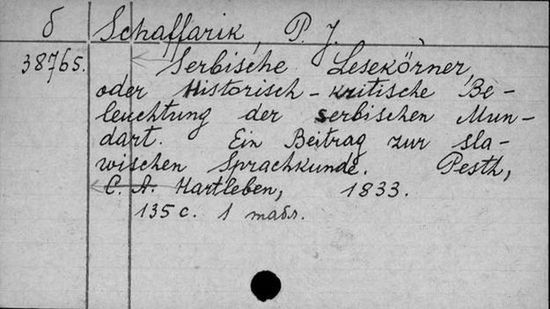 б Schaffarik, P. J.
38765. Serbische Lesekörner,
oder Historisch-kritische Be-
leuchtung der serbischen Mun-
dart. Ein Beitrag zur sla-
wischen Sprachkunde. Pesth,
C. A. Hartleben, 1833.
135 с. 1 табл.